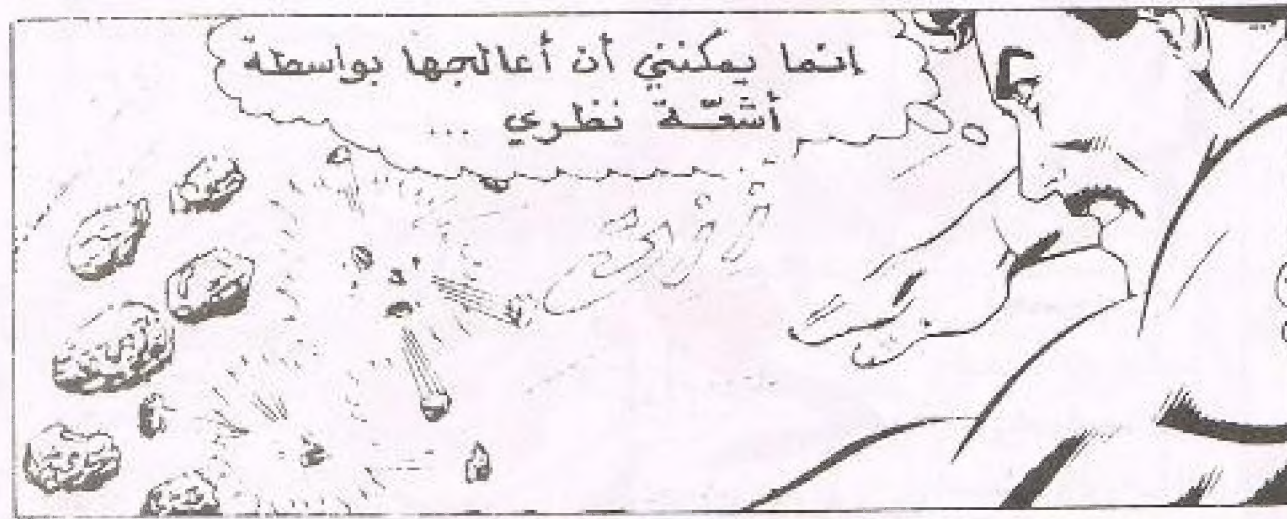 انما يمكنني أن أعالجها بواسطة
أشعّة نظري ...